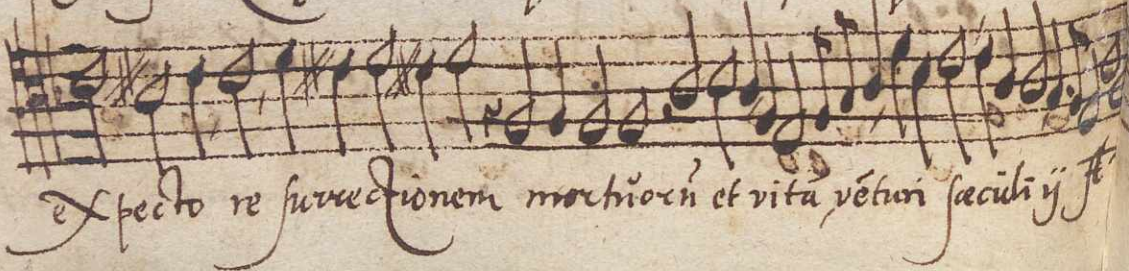 expecto re surrectionem mortŭorū et vitā vēturi sæcŭli ij